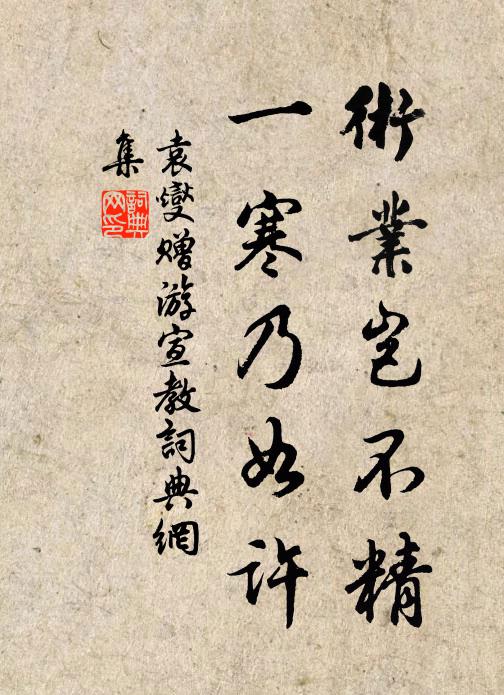 術業豈不精
一寒乃如許
袁燮贈游宣教詞典網
集
詞典
网印